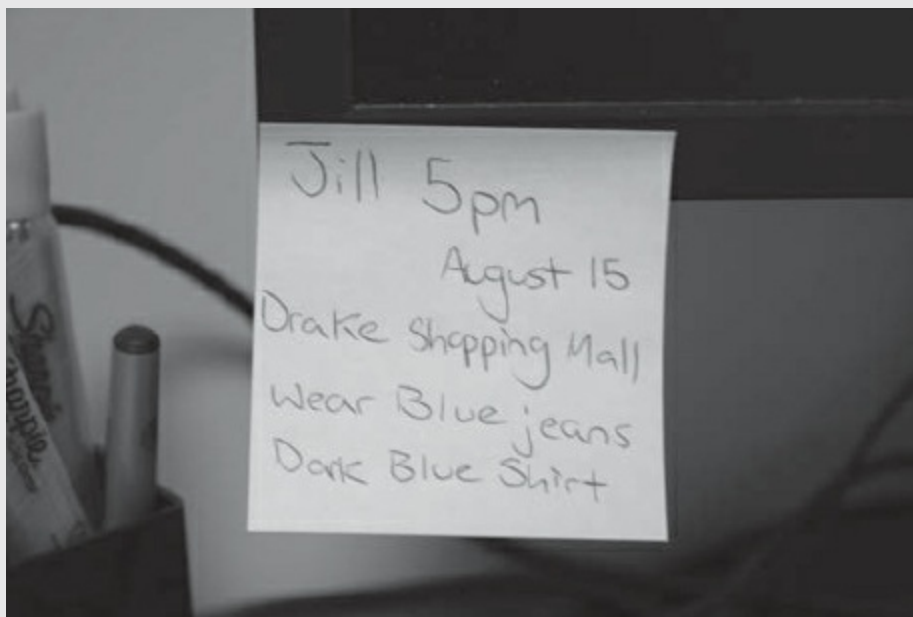 Jill 5pm
August 15
Drake Shopping Mall
Wear Blue jeans
Dark Blue Shirt
Sharpie
Sharpie